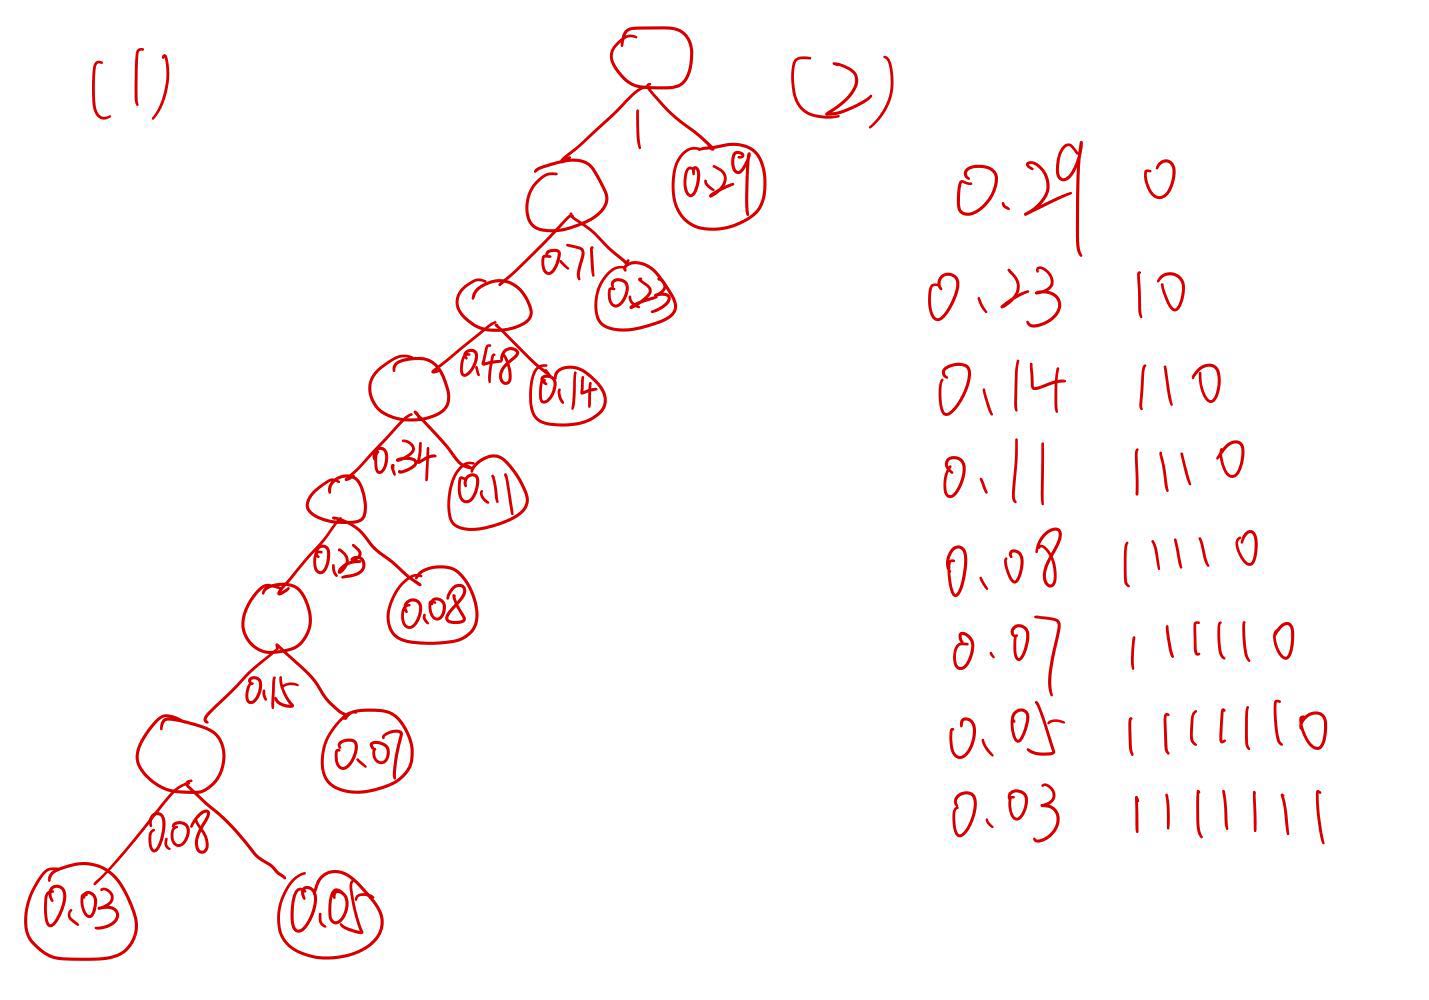 (1)
1
0.29
0.71
0.23
0.48
0.14
0.34
0.11
0.23
0.08
0.15
0.07
0.08
0.03
0.05
(2)
0.29 0
0.23 10
0.14 110
0.11 1110
0.08 11110
0.07 111110
0.05 1111110
0.03 1111111